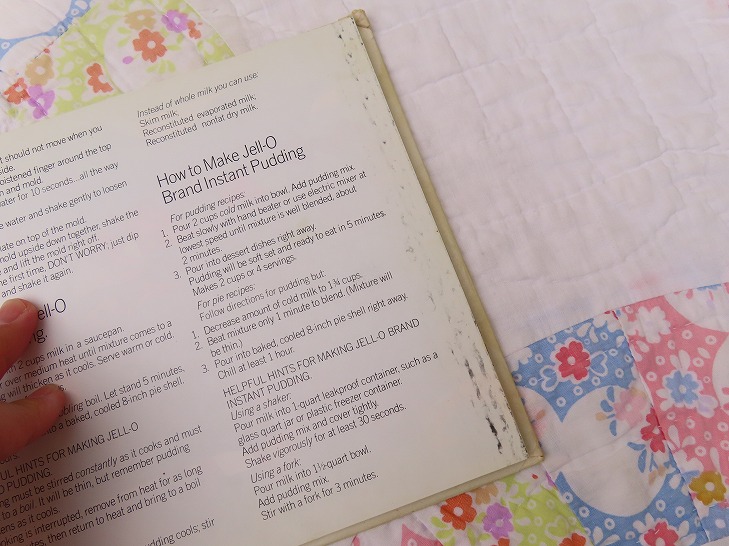 t should not move when you
side.
oistened finger around the top
n and mold.
ater for 10 seconds...all the way
e water and shake gently to loosen
ate on top of the mold.
mold upside down together, shake the
e and lift the mold right off.
he first time, DON'T WORRY; just dip
and shake it again.
ell-O
ng.
2 cups milk in a saucepan.
r over medium heat until mixture comes to a
ng will thicken as it cools. Serve warm or cold.
bling boil. Let stand 5 minutes,
to a baked, cooled 8-inch pie shell.
FUL HINTS FOR MAKING JELL-O
PUDDING.
ng must be stirred constantly as it cooks and must
to a boil. It will be thin, but remember pudding
ens as it cools.
oking is interrupted, remove from heat for as long
tes, then return to heat and bring to a boil
udding cools; stir
Instead of whole milk you can use:
Skim milk.
Reconstituted evaporated milk.
Reconstituted nonfat dry milk.
How to Make Jell-O
Brand Instant Pudding
For pudding recipes:
1. Pour 2 cups cold milk into bowl. Add pudding mix.
2. Beat slowly with hand beater or use electric mixer at
lowest speed until mixture is well blended, about
2 minutes.
3. Pour into dessert dishes right away.
Pudding will be soft set and ready to eat in 5 minutes.
Makes 2 cups or 4 servings.
For pie recipes:
Follow directions for pudding but:
1. Decrease amount of cold milk to 1¾ cups.
2. Beat mixture only 1 minute to blend. (Mixture will
be thin.)
3. Pour into baked, cooled 8-inch pie shell right away.
Chill at least 1 hour.
HELPFUL HINTS FOR MAKING JELL-O BRAND
INSTANT PUDDING.
Using a shaker:
Pour milk into 1-quart leakproof container, such as a
glass quart jar or plastic freezer container.
Add pudding mix and cover tightly.
Shake vigorously for at least 30 seconds.
Using a fork:
Pour milk into 1½-quart bowl.
Add pudding mix.
Stir with a fork for 3 minutes.